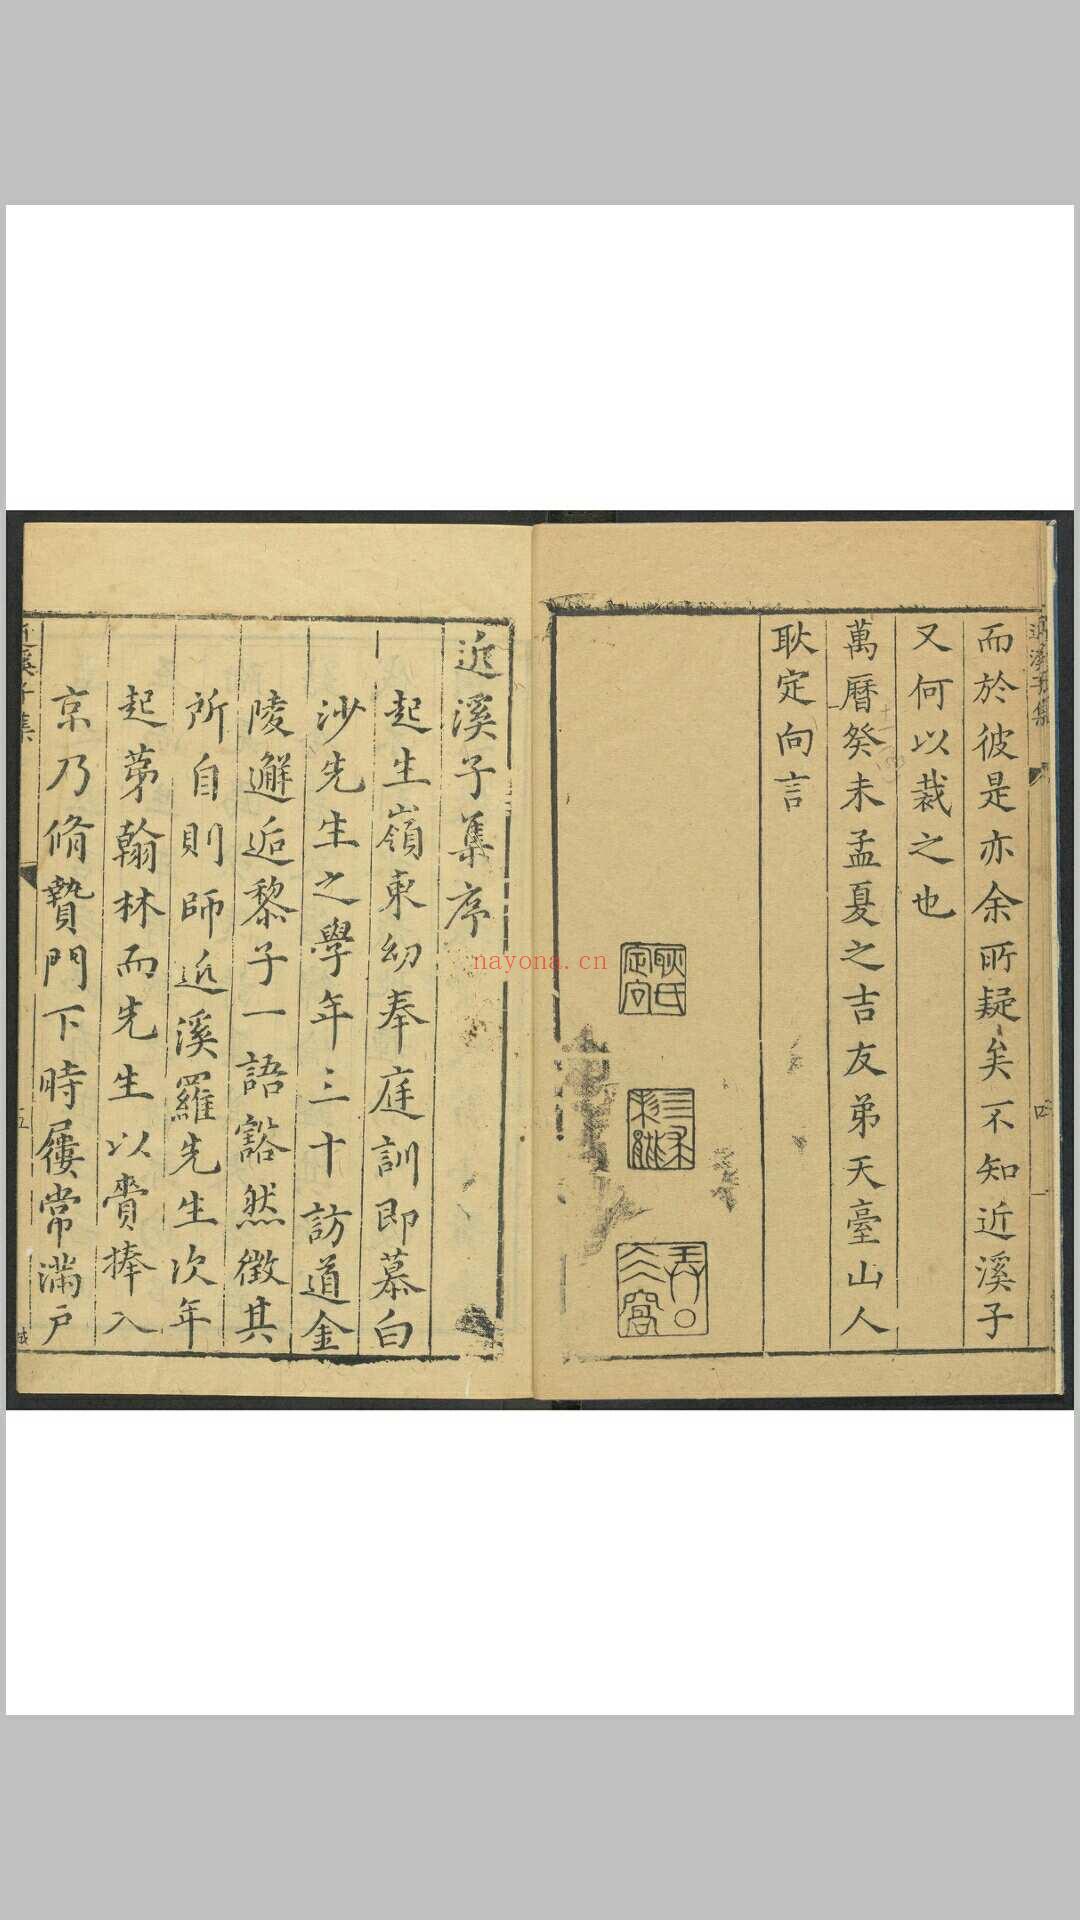 而於彼是亦余所疑矣不知近溪子
又何以裁之也
萬曆癸未孟夏之吉友弟天臺山人
耿定向言
耿氏定向
近溪子集序
起生嶺東幼奉庭訓即慕白
沙先生之學年三十訪道金
陵邂逅黎子一語豁然徵其
所自則師近溪羅先生次年
起苐翰林而先生以賫捧入
京乃脩贄門下時屨常滿戶
近溪子集
五
nayona.cn